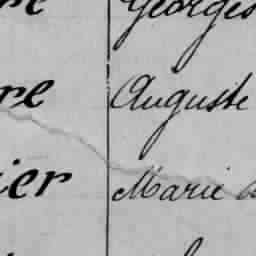 Georges
re Auguste
ier Marie